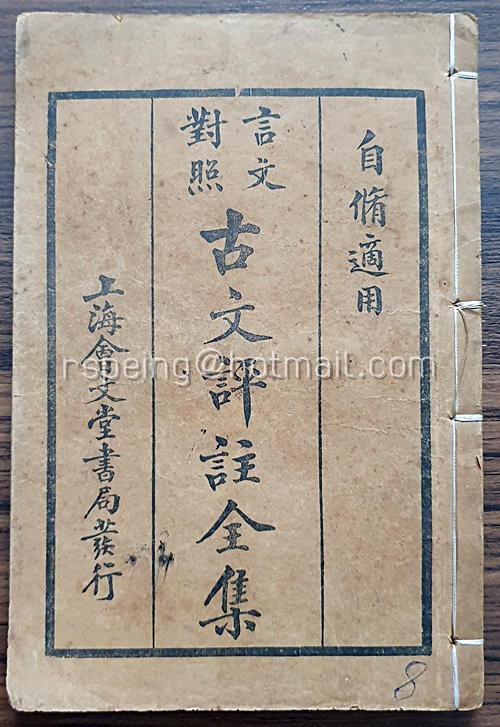 自脩適用
言文
對照
古文評註全集
上海會文堂書局發行
8
rspeing@hotmail.com